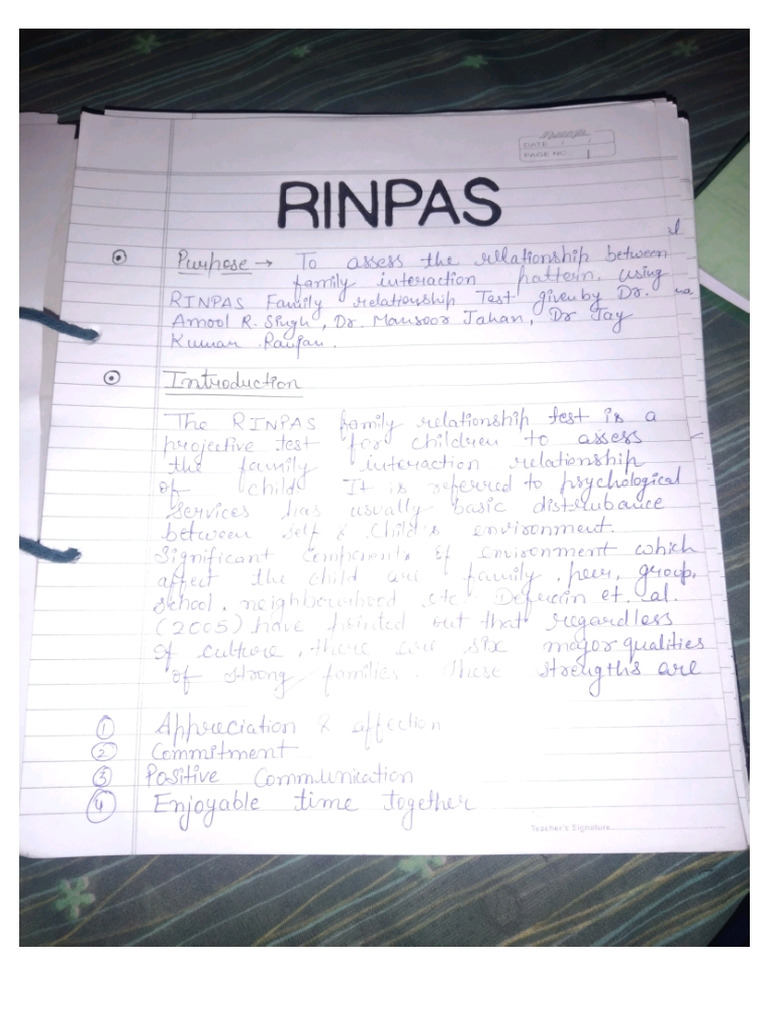 DATE / /
PAGE NO. 1
RINPAS
Purpose → To assess the rellationship between
family interaction pattern, using
RINPAS Family relationship Test given by Dr.
Amool R. Singh, Dr. Mansoor Jahan, Dr Jay
Kumar Ranjan.
Introduction
The RINPAS family relationship test is a
projective test for children to assess
the family interaction relationship
of child It is referred to psychological
services has usually basic disturbance
between self & child's environment.
Significant components of environment which
affect the child are family, peer, group,
school, neighbourhood, etc. Defrain et. al.
(2005) have pointed out that regardless
of culture, there are six major qualities
of strong families. These strengths are
① Appreciation & affection
② Commitment
③ Positive Communication
④ Enjoyable time together
Teacher's Signature